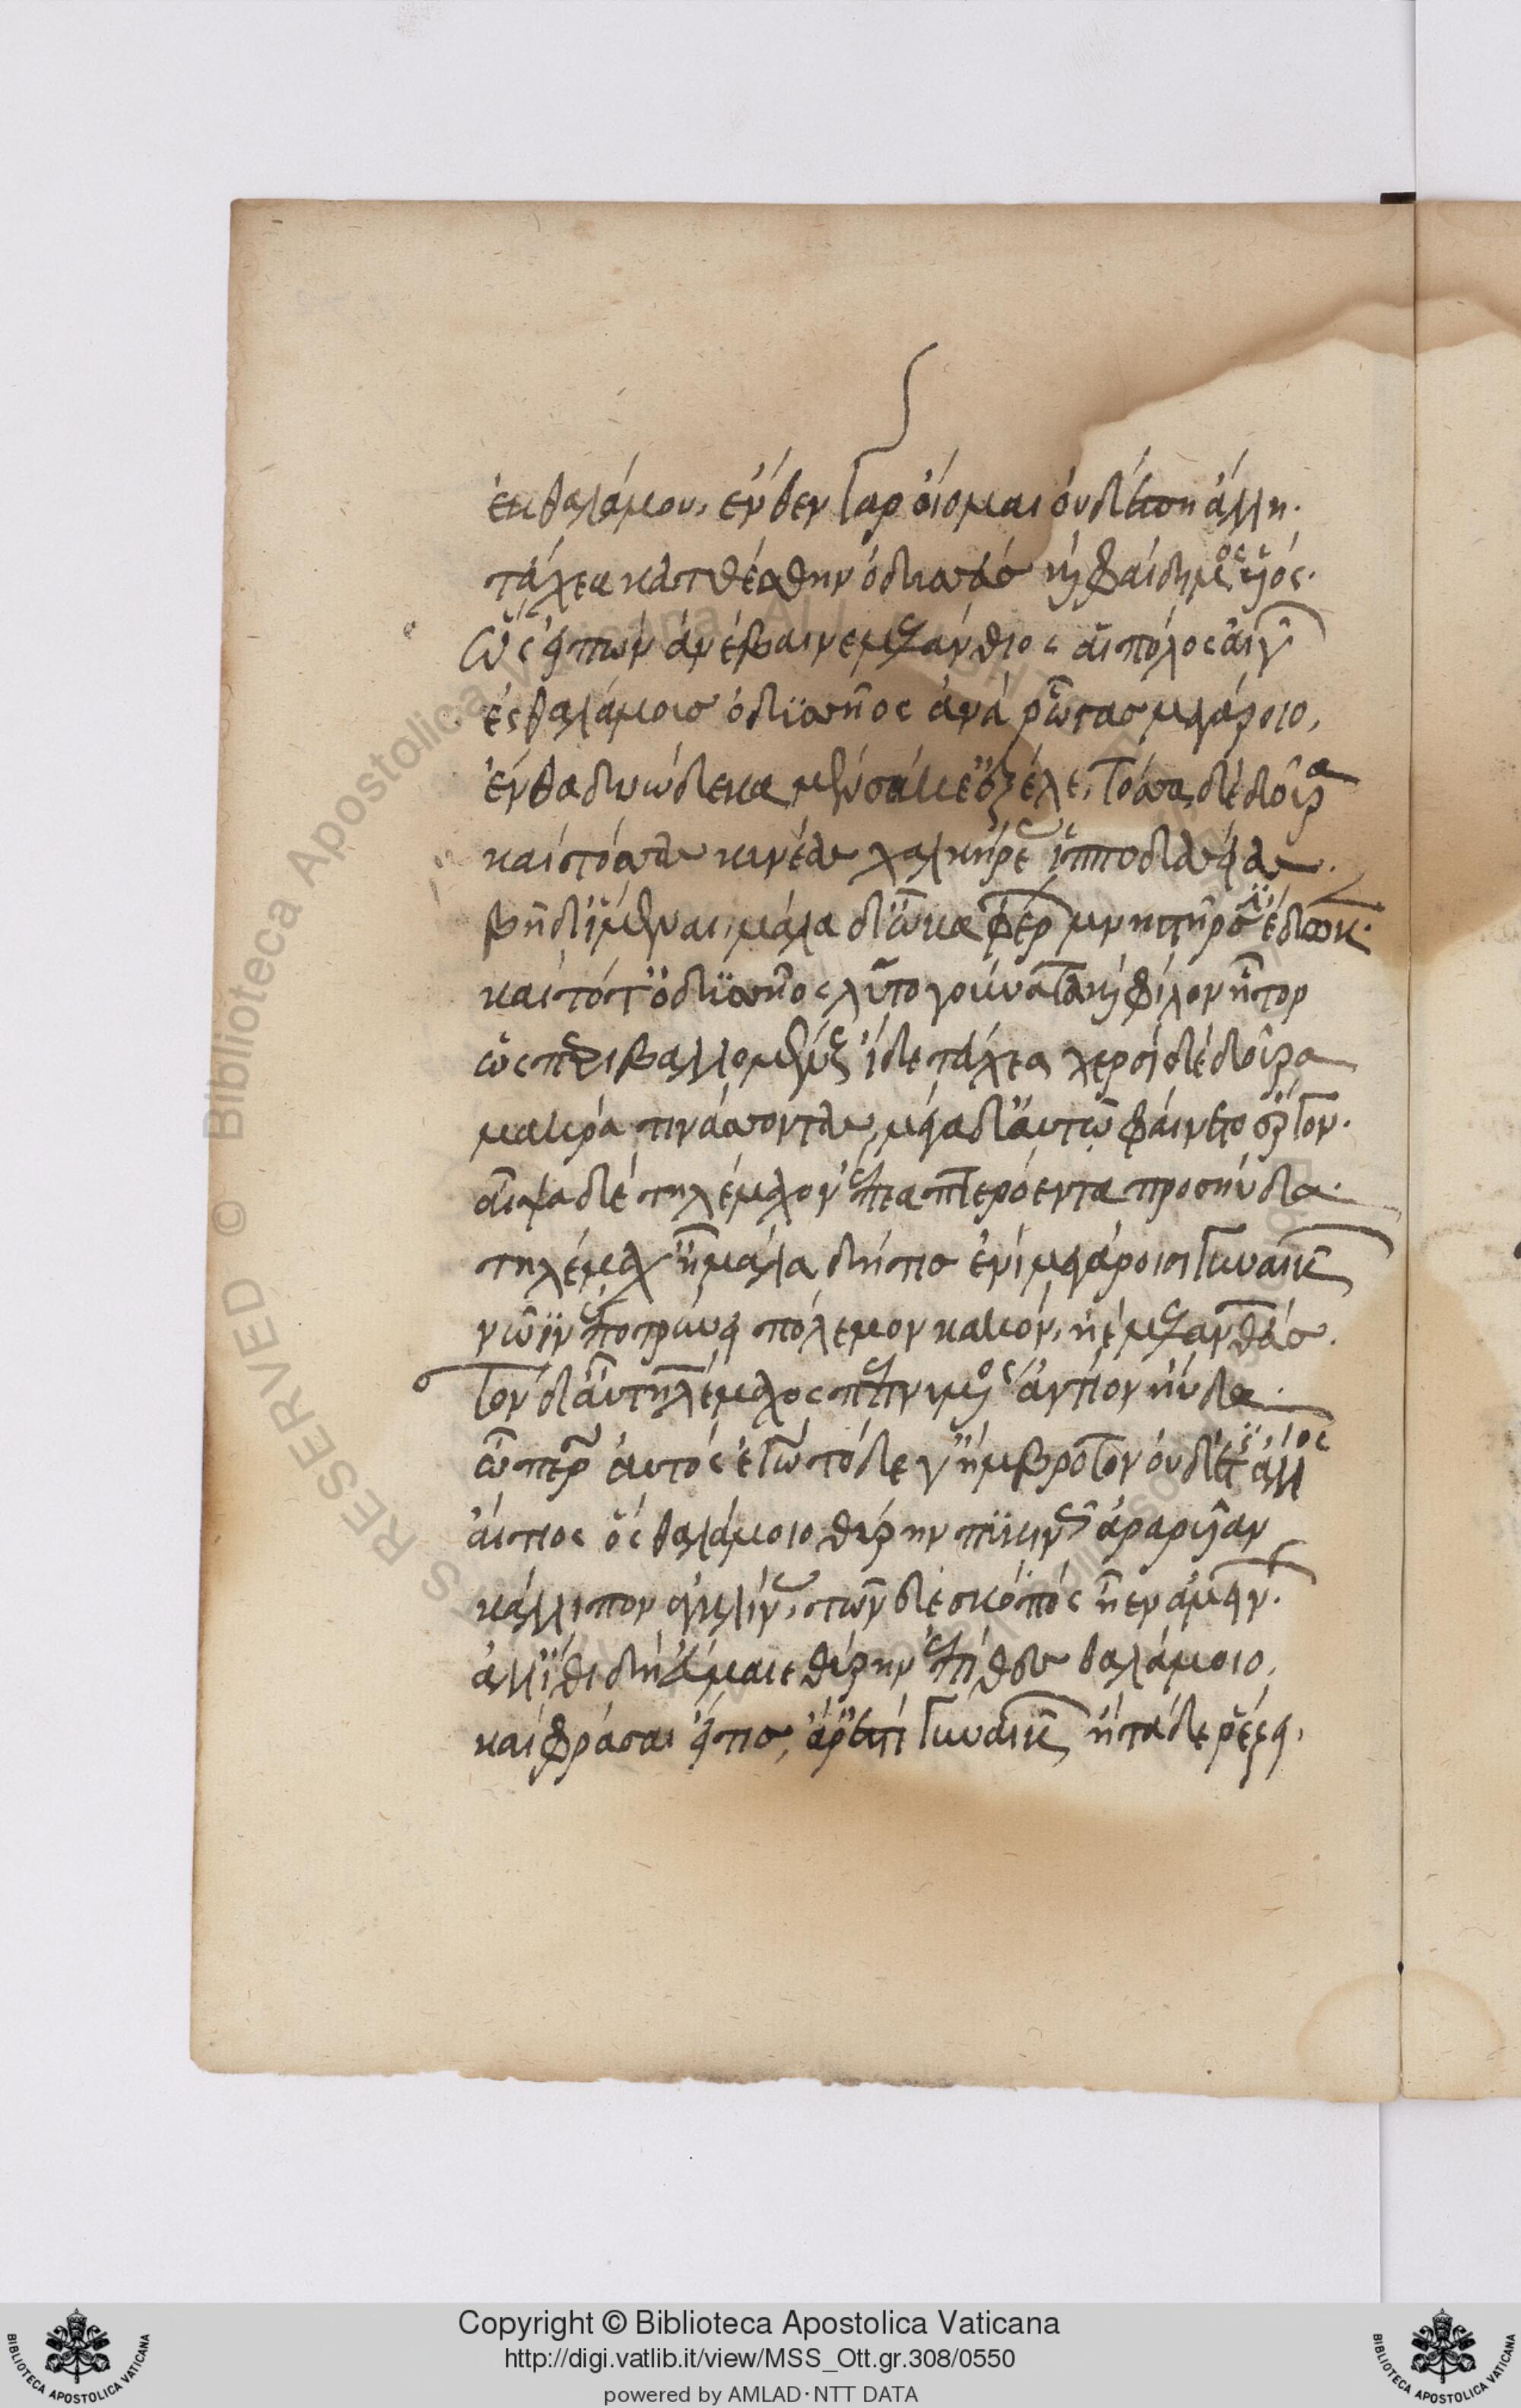 ἐκ θαλάμου· ἔνδον γαρ ὀίομαι ὀυδέ πη ἄλλη·
τέυχεα κατθέσθην ὀδυσσεὺς καὶ φαίδιμος υἱός·
ὣς εἰπὼν ἀνέβαινε μελάνθιος ἀιπόλος ἀιγῶν
ἐς θαλάμους ὀδυσῆος ἀνὰ ῥῶγας μεγάροιο,
ἔνθεν δυώδεκα μὲν σάκε' ἔξελε, τόσσα δὲ δοῦρα
καὶ τόσσας κυνέας χαλκήρεας ἱπποδασείας·
βῆ δ' ἴμεναι, μάλα δ' ὦκα φέρων μνηστῆρσιν ἔδωκεν·
καὶ τότ' ὀδυσσῆος λύτο γούνατα καὶ φίλον ἦτορ
ὡς περιβαλλομένους ἴδε τέυχεα χερσί δὲ δοῦρα
μακρὰ τινάσσοντας, μέγα δ' ἀυτῷ φαίνετο ἔργον·
αἶψα δὲ τηλέμαχον ἔπεα πτερόεντα προσηύδα·
τηλέμαχ' ἦ μάλα δή τις ἐνὶ μεγάροισι γυναικῶν
νῶϊν ἐποτρύνει πόλεμον κακόν, ἠὲ μελανθεύς.
Τὸν δ' αὖ τηλέμαχος πεπνυμένος ἀντίον ηὔδα·
ὦ πάτερ ἀυτὸς ἐγὼ τόδε γ' ἤμβροτον ὀυδέ τις ἄλλος
ἄιτιος ὃς θαλάμοιο θύρην πυκινῶς ἀραρυῖαν
κάλλιπον ἀγκλίνας, τῶν δὲ σκοπὸς ἦεν ἀμείνων·
ἀλλ' ἴθι δῖ' ἔυμαιε θύρην ἐπίθες θαλάμοιο,
καὶ φράσαι εἴ τις ἄρ' ἐστὶ γυναικῶν ἣ τάδε ῥέζει,
Copyright © Biblioteca Apostolica Vaticana
http://digi.vatlib.it/view/MSS_Ott.gr.308/0550
powered by AMLAD·NTT DATA